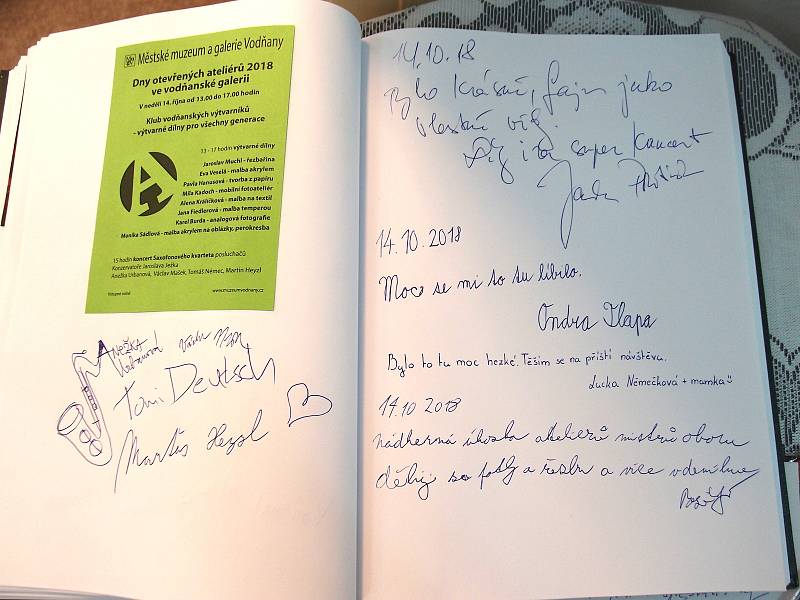 Městské muzeum a galerie Vodňany
Dny otevřených ateliérů 2018
ve vodňanské galerii
V neděli 14. října od 13.00 do 17.00 hodin
Klub vodňanských výtvarníků
- výtvarné dílny pro všechny generace
13 - 17 hodin výtvarné dílny
Jaroslav Muchl - řezbařina
Eva Veselá - malba akrylem
Pavla Hanusová - tvorba z papíru
Míla Kadoch - mobilní fotoateliér
Alena Králíčková - malba na textil
Jana Fiedlerová - malba temperou
Karel Burda - analogová fotografie
Monika Sádlová - malba akrylem na oblázky, perokresba
15 hodin koncert Saxofonového kvarteta posluchačů
Konzervatoře Jaroslava Ježka
Anežka Urbanová, Václav Mašek, Tomáš Němec, Martin Heyzl
Vstupné volné
www.muzeumvodnany.cz
ANEŽKA
Urbanová
Tomi Deutsch
Martin Heyzl
14.10.18
Bylo krásně, fajn jako
vlastně vždy.
super koncert
14.10.2018
Moc se mi to tu líbilo.
Ondra Tlapa
Bylo to tu moc hezké. Těším se na příští návštěvu.
Lucka Němečková + mamka
14.10 2018
nádherná ateliérů mistrů oboru
děkuji za a a více